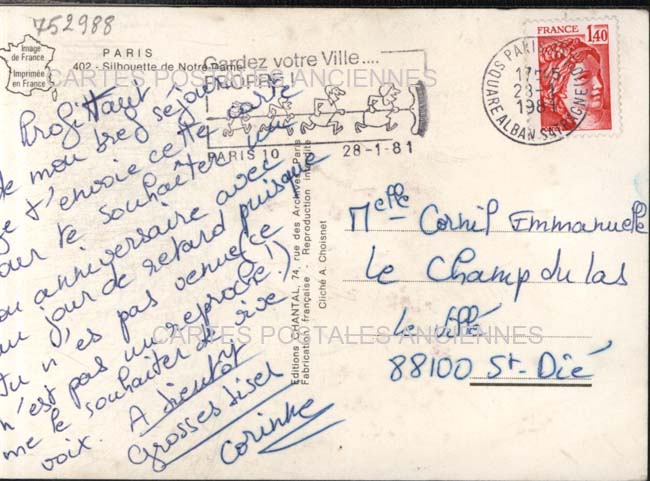 752988
Image
de France
Imprimée
en France
PARIS
402 - Silhouette de Notre Dame
CARTES POSTALES ANCIENNES
Gardez votre Ville....
PARIS 10 28-1-81
PARIS
28-1
1981
SQUARE ALBAN SATRAGNE (10e)
FRANCE
1,40
Profittant
de mon bref séjour
je t'envoie cette carte
pour te souhaiter un
bon anniversaire avec
un jour de retard puisque
tu n'es pas venue (ce
n'est pas un reproche!)
me le souhaiter de vive
voix. A bientôt
Grosses bises
Corinne
Editions CHANTAL, 74, rue des Archives, Paris
Fabrication française - Reproduction interdite
Cliché A. Choisnet
Melle Cornil Emmanuelle
Le Champ du las
88100 St-Dié
CARTES POSTALES ANCIENNES